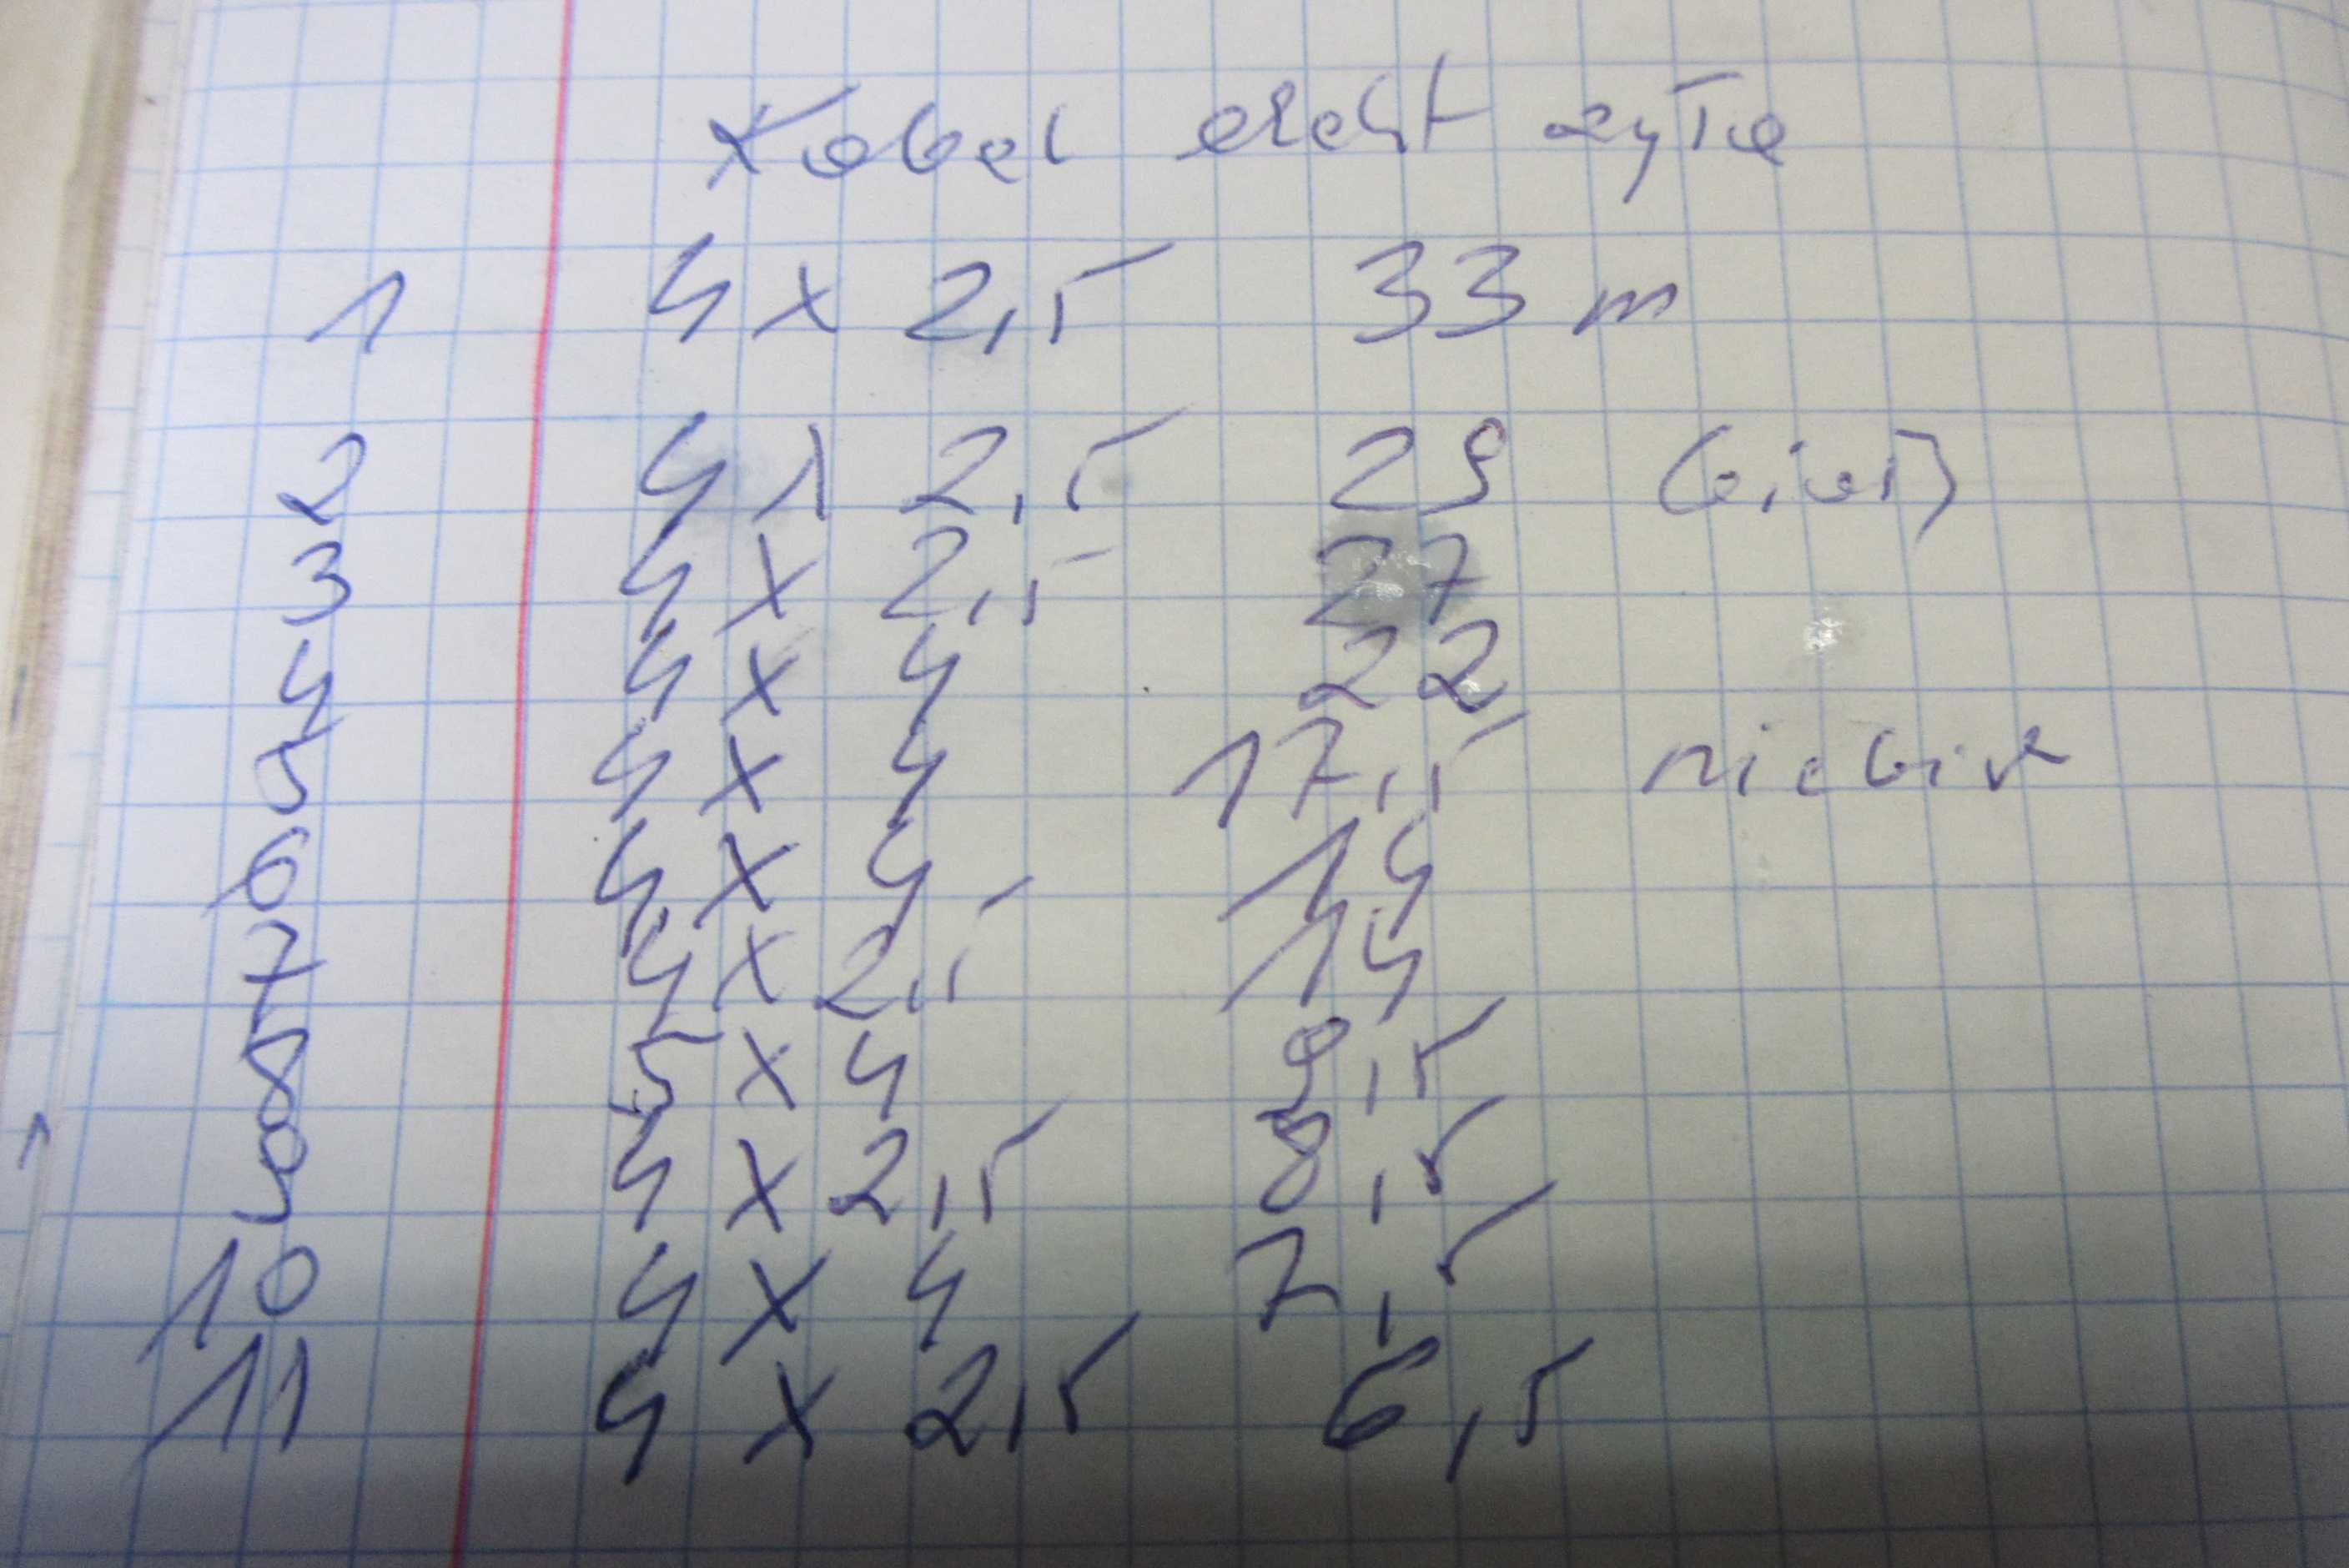 Kabel elekt żyłe
1 4 x 2,5 33 m
2 4 x 2,5 29 (biał)
3 4 x 2,5 27
4 4 x 4 22
5 4 x 4 17,5 niebie
6 4 x 4 14
7 4 x 2,5 14
8 5 x 4 9,5
9 4 x 2,5 8,5
10 4 x 4 7,5
11 4 x 2,5 6,5